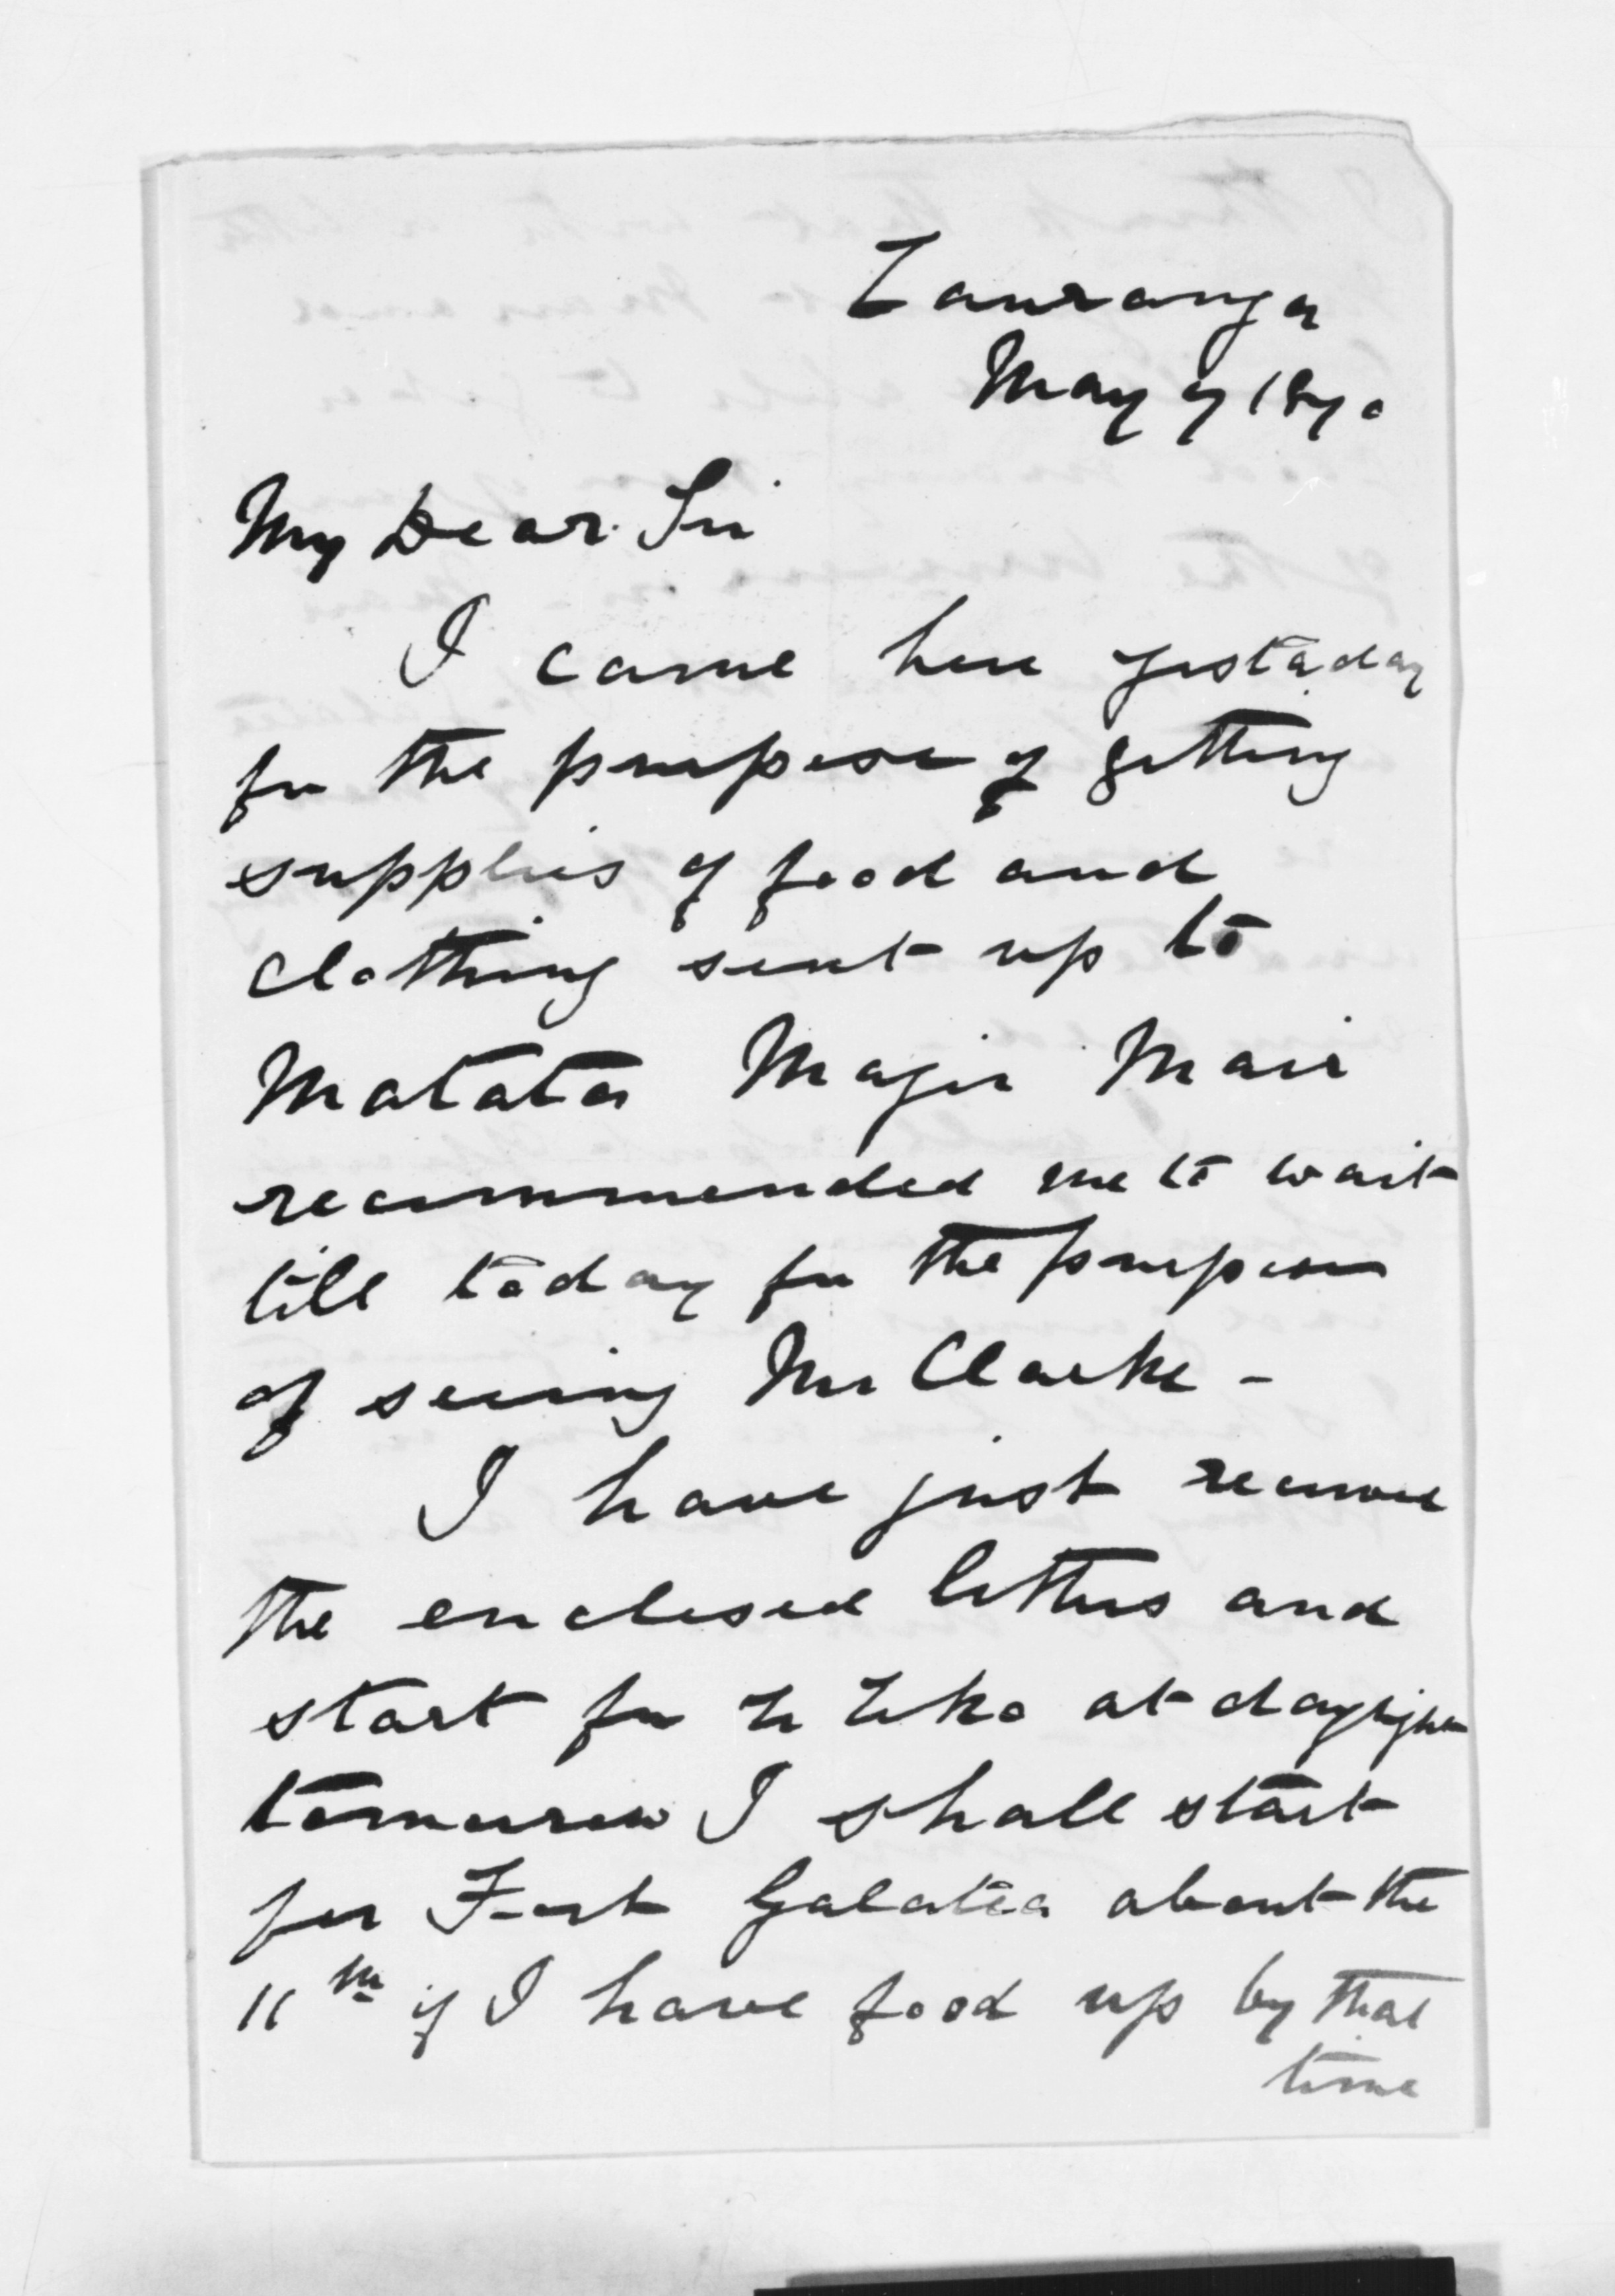 Tauranga
May 7 1870
My Dear Sir
I came here yesterday
for the purpose of getting
supplies of food and
clothing sent up to
Matata Major Mair
recommended me to wait
till today for the purpose
of seeing Mr Clarke -
I have just received
the enclosed letters and
start for Te Teko at daylight
tomorrow I shall start
for Fort Galatea about the
11th if I have food up by that
time